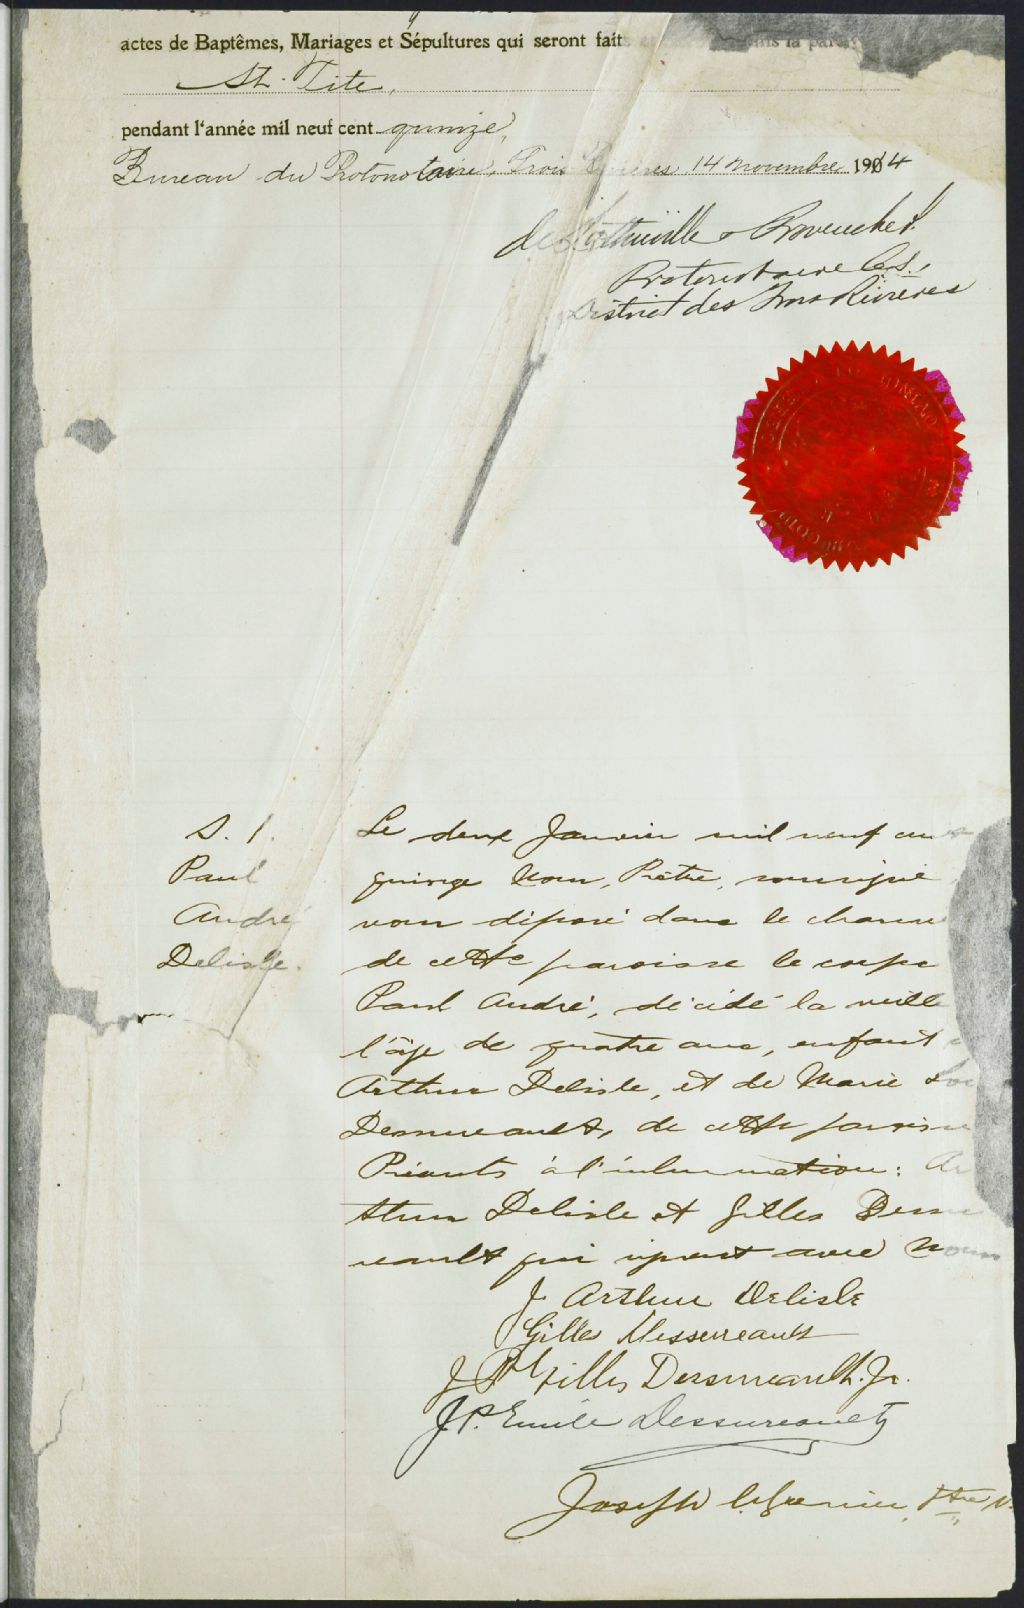 actes de Baptêmes, Mariages et Sépultures qui seront faits la
St. Tite,
pendant l'année mil neuf cent quinze,
Bureau du Protonotaire, Trois Rivières 14 novembre 1914
Provencher
Protonotaire C.S.,
District des Trois Rivières
S. 1.
Paul
André
Delisle.
Le deux Janvier mil neuf cent
quinze Nous, Prêtre, soussigné
vons déposé dans le charnier
de cette paroisse le corps
Paul André, décédé la veille
l'âge de quatre ans, enfant
Arthur Delisle, et de Marie
Dessureault, de cette paroisse
Présents à l'inhumation: Ar
thur Delisle et Gilles Dessu
reault qui signent avec Nous
J. Arthur Delisle
Gilles Dessureault
Gilles Dessureault. Jr.
J. P. Emile Dessureault
Joseph Ptre